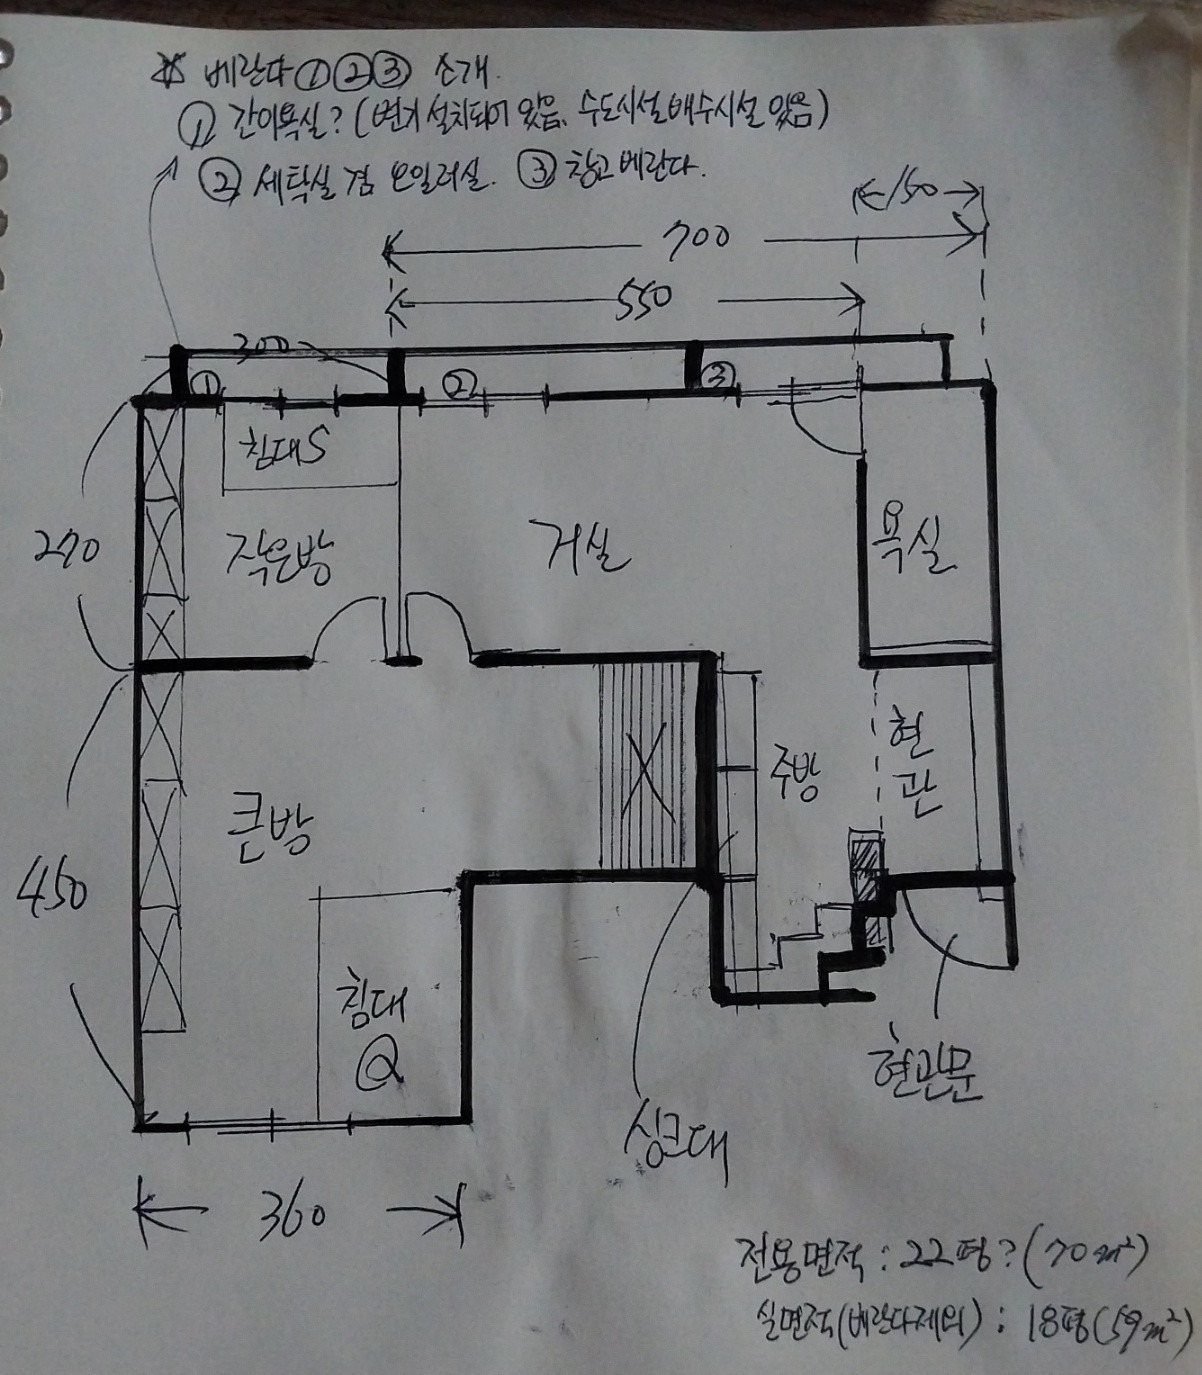 ※ 베란다 ① ② ③ 소개.
① 간이욕실? (변기 설치되어 있음, 수도시설 배수시설 있음)
② 세탁실 겸 보일러실. ③ 창고베란다.
150
700
550
300
① ② ③
침대S
270
작은방
거실
욕실
현관
주방
큰방
450
침대
Q
현관문
싱크대
360
전용면적 : 22평? (70m²)
실면적(베란다제외) : 18평(59m²)